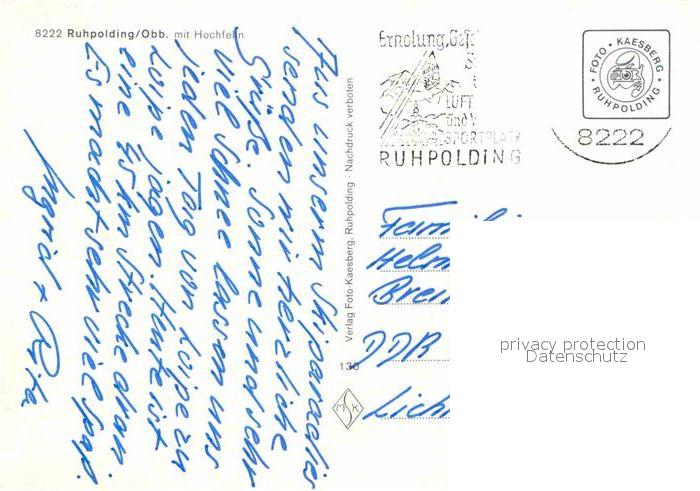 8222 Ruhpolding/Obb. mit Hochfelln
Aus unserm Skiparadies
senden wir herzliche
Grüße. Sonne und sehr
viel Schnee lassen uns
jeden Tag von Loipe zu
Loipe jagen. Heute ist
eine 45 km Strecke dran.
Es macht sehr viel Spaß.
Ingrid + Rita
Verlag Foto-Kaesberg, Ruhpolding - Nachdruck verboten
130
MSK
Erholung, Ges
LUFT
und
SPORTPLATZ
RUHPOLDING
FOTO • KAESBERG • RUHPOLDING
8222
Famili
Helm
Brei
DDR
Lich
privacy protection
Datenschutz